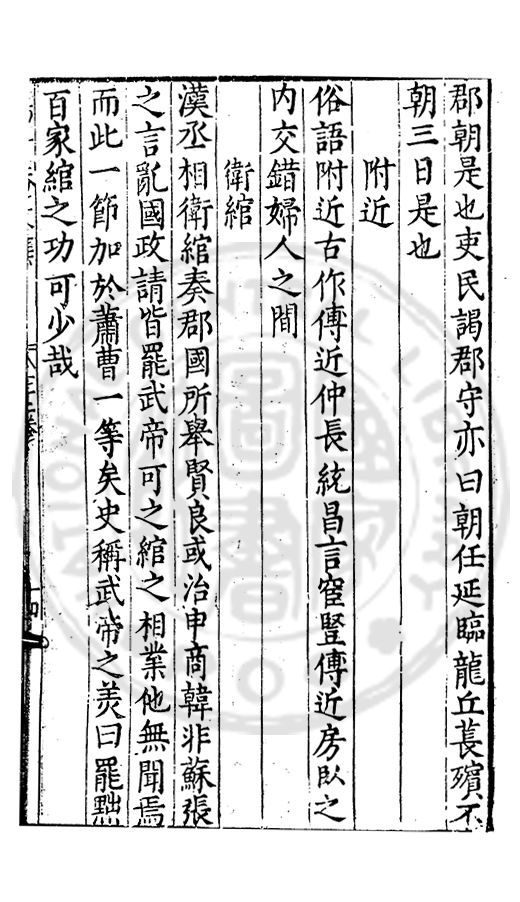 郡朝是也吏民謁郡守亦曰朝任延臨龍丘萇殯不
朝三日是也
附近
俗語附近古作傅近仲長統昌言宦豎傅近房臥之
內交錯婦人之間
衛綰
漢丞相衛綰奏郡國所舉賢良或治申商韓非蘇張
之言亂國政請皆罷武帝可之綰之相業他無聞焉
而此一節加於蕭曹一等矣史稱武帝之美曰罷黜
百家綰之功可少哉